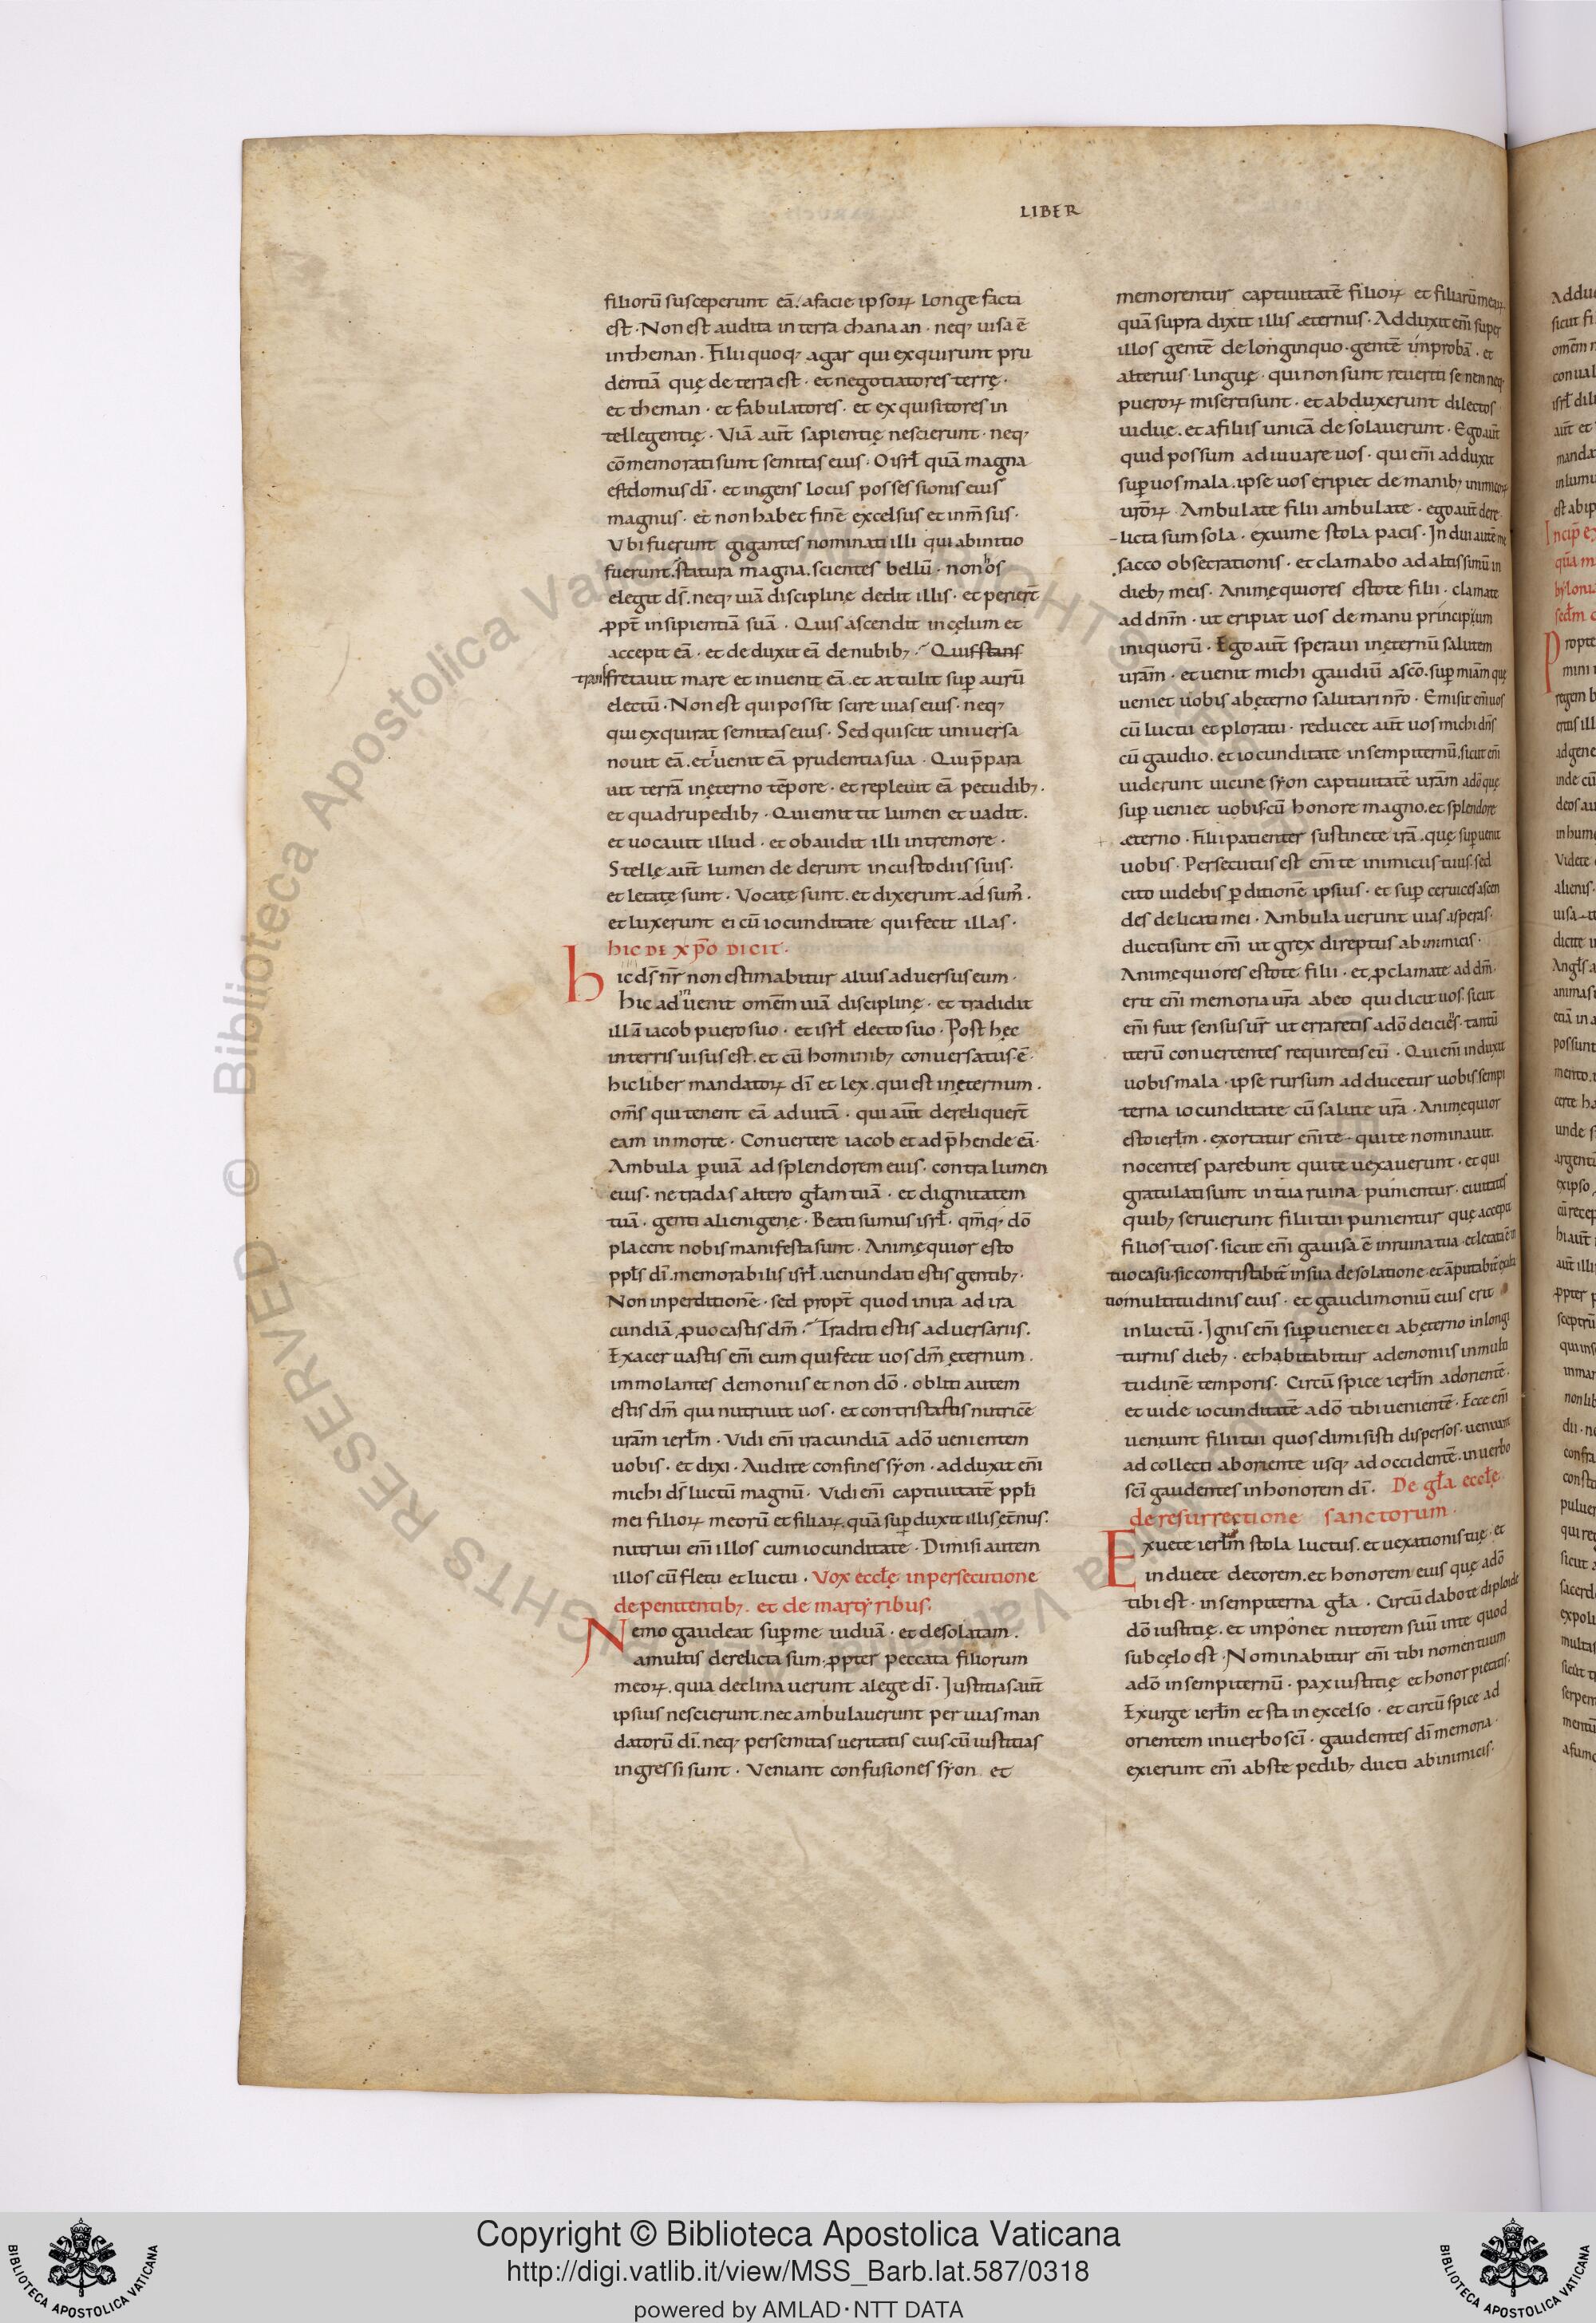 LIBER
filiorū susceperunt eā. afacie ipsoꝝ longe facta
est · Non est audita interra chanaan · neq; uisa ē
intheman · Filii quoq; agar qui exquirunt pru
dentiā quę de terra est · et negotiatores terrę ·
et theman · et fabulatores · et exquisitores in
tellegentię · Viā aūt sapientię nescierunt · neq;
cōmemorati sunt semitas eius · O isrł quā magna
est domus dī · et ingens locus possessionis eius
magnus · et non habet finē excelsus et inm̄sus ·
Vbi fuerunt gigantes nominati illi qui abinitio
fuerunt. statura magna. scientes bellū · non hos
elegit ds̄. neq; uiā disciplinę dedit illis · et perier̄t
ꝓpt̄ insipientiā suā · Quis ascendit incęlum et
accepit eā · et deduxit eā denubib; · Quis
transfretauit mare et inuenit eā. et attulit suꝑ aurū
electū · Non est qui possit scire uias eius · neq;
qui exquirat semitas eius · Sed qui scit uniuersa
nouit eā. et inuenit eā prudentia sua · Qui p̄para
uit terrā inęterno tēpore · et repleuit eā pecudib; ·
et quadrupedib; · Qui emittit lumen et uadit ·
et uocauit illud · et obaudit illi intremore ·
Stellę aūt lumen dederunt incustodiis suis ·
et letatę sunt · Vocatę sunt. et dixerunt. adsum̄ ·
et luxerunt ei cū iocunditate qui fecit illas ·
hIC DE XP̄O DICIT ·
hic ds̄ nr̄ non estimabitur alius aduersus eum ·
Hic adinuenit omēm uiā disciplinę · et tradidit
illā iacob puero suo · et isrł electo suo · Post hęc
interris uisus est. et cū hominib; conuersatus ē ·
hic liber mandatoꝝ dī et lex. qui est inęternum ·
om̄s qui tenent eā aduitā · qui aūt dereliquer̄t
eam inmorte · Conuertere iacob et adp̄hende eā ·
Ambula ꝑ uiā adsplendorem eius · contra lumen
eius · ne tradas altero głam tuā · et dignitatem
tuā · genti alienigenę · Beati sumus isrł · qm̄ q; dō
placent nobis manifesta sunt · Animęquior esto
ppłs dī. memorabilis isrł. uenundati estis gentib; ·
Non inperditionē · sed propt̄ quod inira adira
cundiā ꝓuocastis dm̄ · Traditi estis aduersariis ·
Exaceruastis em̄ eum qui fecit uos dm̄ ęternum ·
immolantes demoniis et non dō · obliti autem
estis dm̄ qui nutriuit uos · et contristastis nutricē
urām ierłm · Vidi em̄ iracundiā adō uenientem
uobis · et dixi · Audite confines syon · adduxit em̄
michi ds̄ luctū magnū · Vidi em̄ captiuitatē ppłi
mei filioꝝ meorū et filiaꝝ. quā suꝑduxit illis ęt̄nus ·
nutriui em̄ illos cum iocunditate · Dimisi autem
illos cū fletu et luctu · Vox eccłę inpersecutione
de penitentib; · et de martyribus ·
Nemo gaudeat suꝑ me uiduā · et desolatam ·
amultis derelicta sum. ꝓpter peccata filiorum
meoꝝ. quia declinauerunt alege dī · Iustitias aūt
ipsius nescierunt. nec ambulauerunt per uias man
datorū dī. neq; per semitas ueritatis eius. cū iustitias
ingressi sunt · Veniant confusiones syon et
memorentur captiuitatē filioꝝ et filiarū meaꝝ
quā supra dixit illis æternus · Adduxit em̄ super
illos gentē de longinquo · gentē inprobā · et
alterius linguę · qui non sunt reueriti senem neq;
pueroꝝ miserti sunt · et abduxerunt dilectos
uiduę. et afiliis unicā desolauerunt · Ego aūt
quid possum adiuuare uos · qui em̄ adduxit
suꝑ uos mala. ipse uos eripiet de manib; inimicoꝝ
urōꝝ · Ambulate filii ambulate · ego aūt dere
licta sum sola · exuime stola pacis · Indui autē me
sacco obsecrationis · et clamabo ad altissimū in
dieb; meis · Animęquiores estote filii · clamate
ad dnm̄ · ut eripiat uos de manu principium
iniquorū · Ego aūt speraui inęternū salutem
urām · et uenit michi gaudiū ascō · suꝑ miām quę
ueniet uobis abęterno salutari nrō · Emisi em̄ uos
cū luctu et ploratu · reducet aūt uos michi dn̄s
cū gaudio. et iocunditate insempiternū. sicut em̄
uiderunt uicine syon captiuitatē urām adō quę
suꝑueniet uobis. cū honore magno. et splendore
æterno · Filii patienter sustinete irā. quę suꝑuenit
uobis · Persecutus est em̄ te inimicus tuus. sed
cito uidebis ꝑditionē ipsius · et suꝑ ceruices ascen
des delicati mei · Ambulauerunt uias asperas ·
ducti sunt em̄ ut grex direptus abinimicis ·
Animęquiores estote filii · et ꝓclamate ad dm̄ ·
erit em̄ memoria urā abeo qui dicit uos · sicut
em̄ fuit sensus ur̄ ut erraretis adō deicies · tantū
iterū conuertentes requiretis eū · Qui em̄ induxit
uobis mala · ipse rursum adducetur uobis sempi
terna iocunditate cū salute urā · Animęquior
esto ierłm · exortatur em̄ te qui te nominauit ·
nocentes parebunt qui te uexauerunt · et qui
gratulati sunt intua ruina punientur · ciuitates
quib; seruierunt filii tui punientur quę accepit
filios tuos · sicut em̄ gauisa ē inruina tua · et letata ē in
tuo casu · sic contristabit̄ insua desolatione · et āputabit̄ exulta
tio multitudinis eius · et gaudimoniū eius erit
inluctū · Ignis em̄ suꝑueniet ei abęterno inlongi
turnis dieb; · et habitabitur ademoniis inmulti
tudinē temporis · Circūspice ierłm adorientē ·
et uide iocunditatē adō tibi uenientē · Ecce em̄
ueniunt filii tui quos dimisisti dispersos · ueniunt
adcollecti aboriente usq; ad occidentē. inuerbo
scī gaudentes inhonorem dī · De głā eccłę
de resurrectione sanctorum ·
Exuete ierłm stola luctus. et uexationis tuę · et
induete decorem. et honorem eius quę adō
tibi est · insempiterna głā · Circūdabo te diploide
dō iustitię. et imponet nitorem suū inte quod
sub cęlo est · Nominabitur em̄ tibi nomen tuum
adō insempiternū · pax iustitię et honor pietatis ·
Exurge ierłm et sta inexcelso · et circūspice ad
orientem inuerbo scī · gaudentes dī memoria ·
exierunt em̄ abs te pedib; ducti abinimicis ·
Copyright © Biblioteca Apostolica Vaticana
http://digi.vatlib.it/view/MSS_Barb.lat.587/0318
powered by AMLAD·NTT DATA
BIBLIOTECA APOSTOLICA VATICANA
BIBLIOTECA APOSTOLICA VATICANA